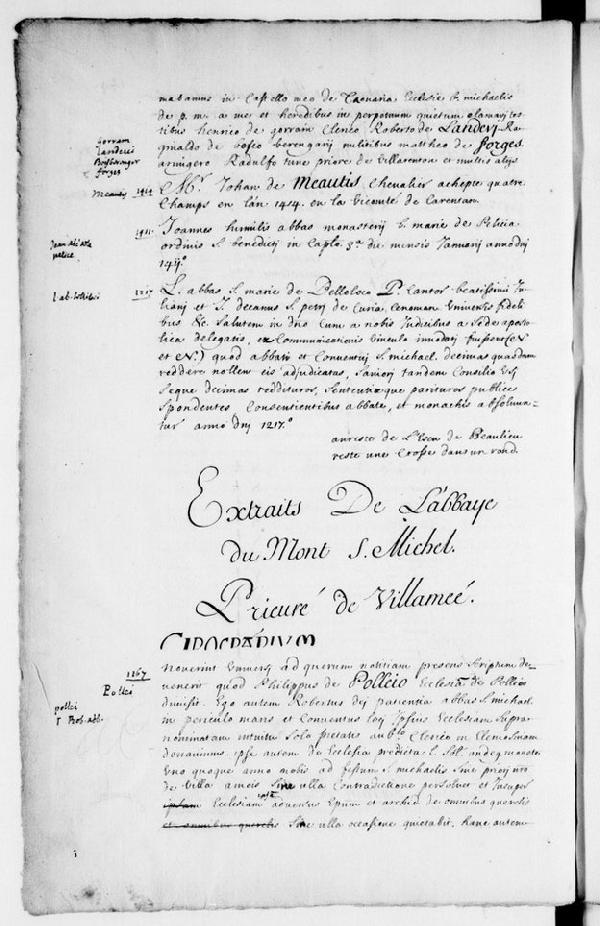 mabamus in Castello meo de Taonaria Ecclesie b. michaelis
de p. m. a me et heredibus in perpetuum quietum clamavi tes
tibus henrico de gorrain Clerico Roberto de Landevi Ra
gnaldo de bosco berengarij militibus mattheo de forges
armigero Radulfo ture priore de Villarenton et multis alijs
gorram
Landevi
Boisberanger
forges
Meautis 1414 Mr. Johan de Meautis Chevalier achepte quatre
Champs en lan 1414. en la Vicomté de Carentan.
1411. Joannes humilis abbas monasterij b. marie de Pelicia
ordinis S. benedicti in Caplo. 5a die mensis Januarij anno dni
1411.o
Jean abbé de
pelice.
1217 L. abbas S. marie de Belloloco P. Cantor beatissimi Ju
liani et J. decanus S. petri de Curia Cenoman Universis fideli
bus &c. Salutem in dno Cum a nobis Judicibus a Sede aposto
lica delegatis, excommunicationis Vinculo innodati fuissent (N
et N.) quod abbati et Conventui S. michael. decimas quasdam
reddere nollent eis adjudicatas, Saniori tandem Consilio Usi
Seque decimas reddituros, Sententieque parituros publice
Spondentes Consentientibus abbate, et monachis absolvun=
tur anno dni 1217.o
au reste de l'Escu de Beaulieu
reste une Crosse dans un rond.
Extraits De L'abbaye
du Mont S. Michel.
Prieuré de Villameé.
CIROGRAPHVM
1267 Noverint Universi ad quorum notitiam presens Scriptum de_
Poltei venerit quod Philippus de Polleio Ecclesiam de Polleio
poltei
Rob. abb.
duxisse. Ego autem Robertus dei patientia abbas S. michael.
in periculo maris et Conventus loci Ipsius Ecclesiam Supra
nominatam intuitu Sola pietatis Clerico in Elemosinam
donavimus ipse autem de Ecclesia predicta
Uno quoque anno nobis ad festum S. michaelis Sive priori nro
de Villa ameis Sine ulla Contradictione persolvet et Insuper
ipsam Ecclesiam adversus Epum et archid de omnibus querelis
et omnibus querelis Sine ulla occasione quietabit. Hanc autem